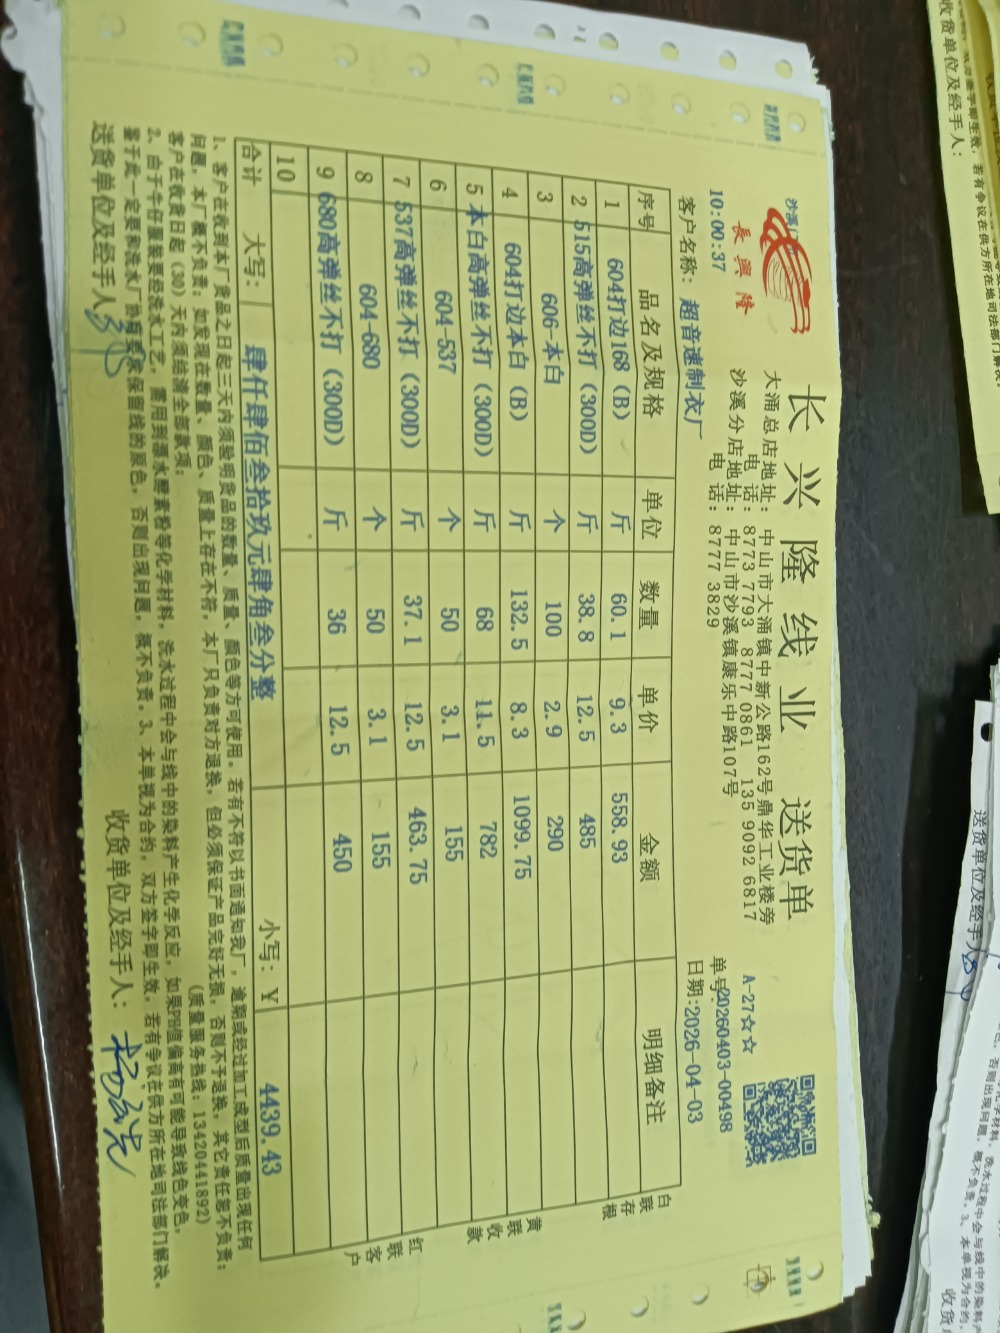 长兴隆线业 送货单
沙溪
長興隆
大涌总店地址：中山市大涌镇中新公路162号鼎华工业楼旁
电 话：8773 7793 8777 0861 135 9092 6817
沙溪分店地址：中山市沙溪镇康乐中路107号
电 话：8777 3829
A-27☆☆
单号:20260403-00498
10:00:37
客户名称：超音速制衣厂
日期:2026-04-03
序号 品名及规格 单位 数量 单价 金额 明细备注
1 604打边168（B） 斤 60.1 9.3 558.93
2 515高弹丝不打（300D） 斤 38.8 12.5 485
3 606-本白 个 100 2.9 290
4 604打边本白（B） 斤 132.5 8.3 1099.75
5 本白高弹丝不打（300D） 斤 68 11.5 782
6 604-537 个 50 3.1 155
7 537高弹丝不打（300D） 斤 37.1 12.5 463.75
8 604-680 个 50 3.1 155
9 680高弹丝不打（300D） 斤 36 12.5 450
10
合计 大写：肆仟肆佰叁拾玖元肆角叁分整 小写：￥ 4439.43
白联存根
黄联收款
红联客户
1、客户在收到本厂货品之日起三天内须验明货品的数量、质量、颜色等方可使用。若有不符以书面通知我厂，逾期或经过加工成型后质量出现任何
问题，本厂概不负责；如发现在数量、颜色、质量上存在不符，本厂只负责对方退换，但必须保证产品完好无损，否则不予退换，其它责任恕不负责；
客户在收货日起（30）天内须结清全部款项；
（质量服务热线：13420441892）
2、由于牛仔服装要经洗水工艺，需用到漂水酵素粉等化学材料，洗水过程中会与线中的染料产生化学反应，如果PH值偏高有可能导致线色变色，
鉴于此一定要和洗水厂 保留线的原色，否则出现问题，概不负责。3、本单视为合约，双方签字即生效，若有争议在供方所在地司法部门解决。
送货单位及经手人：
收货单位及经手人：
收货单位及经手人：
送货单位及经手人